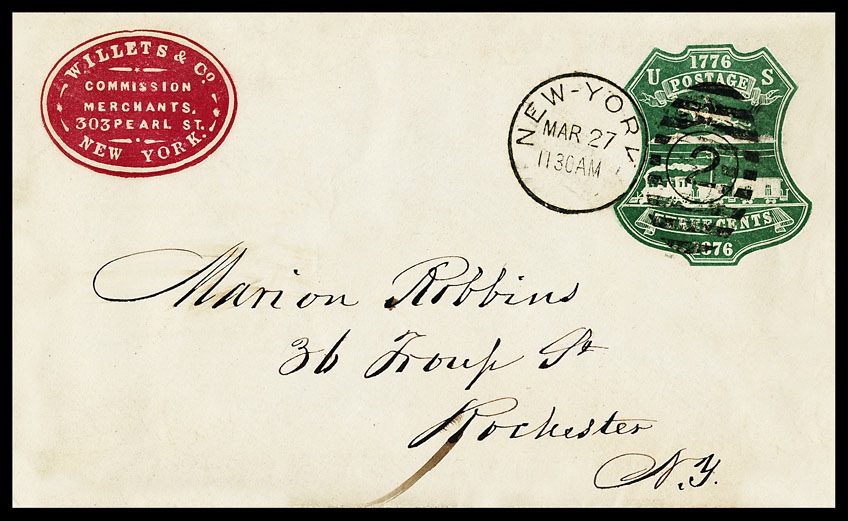 WILLETS & Co.
COMMISSION
MERCHANTS,
303 PEARL ST.
NEW YORK.
NEW-YORK
MAR 27
1130AM
1776
U S
POSTAGE
2
THREE CENTS
1876
Marion Robbins
36 Troup St
Rochester
N.Y.